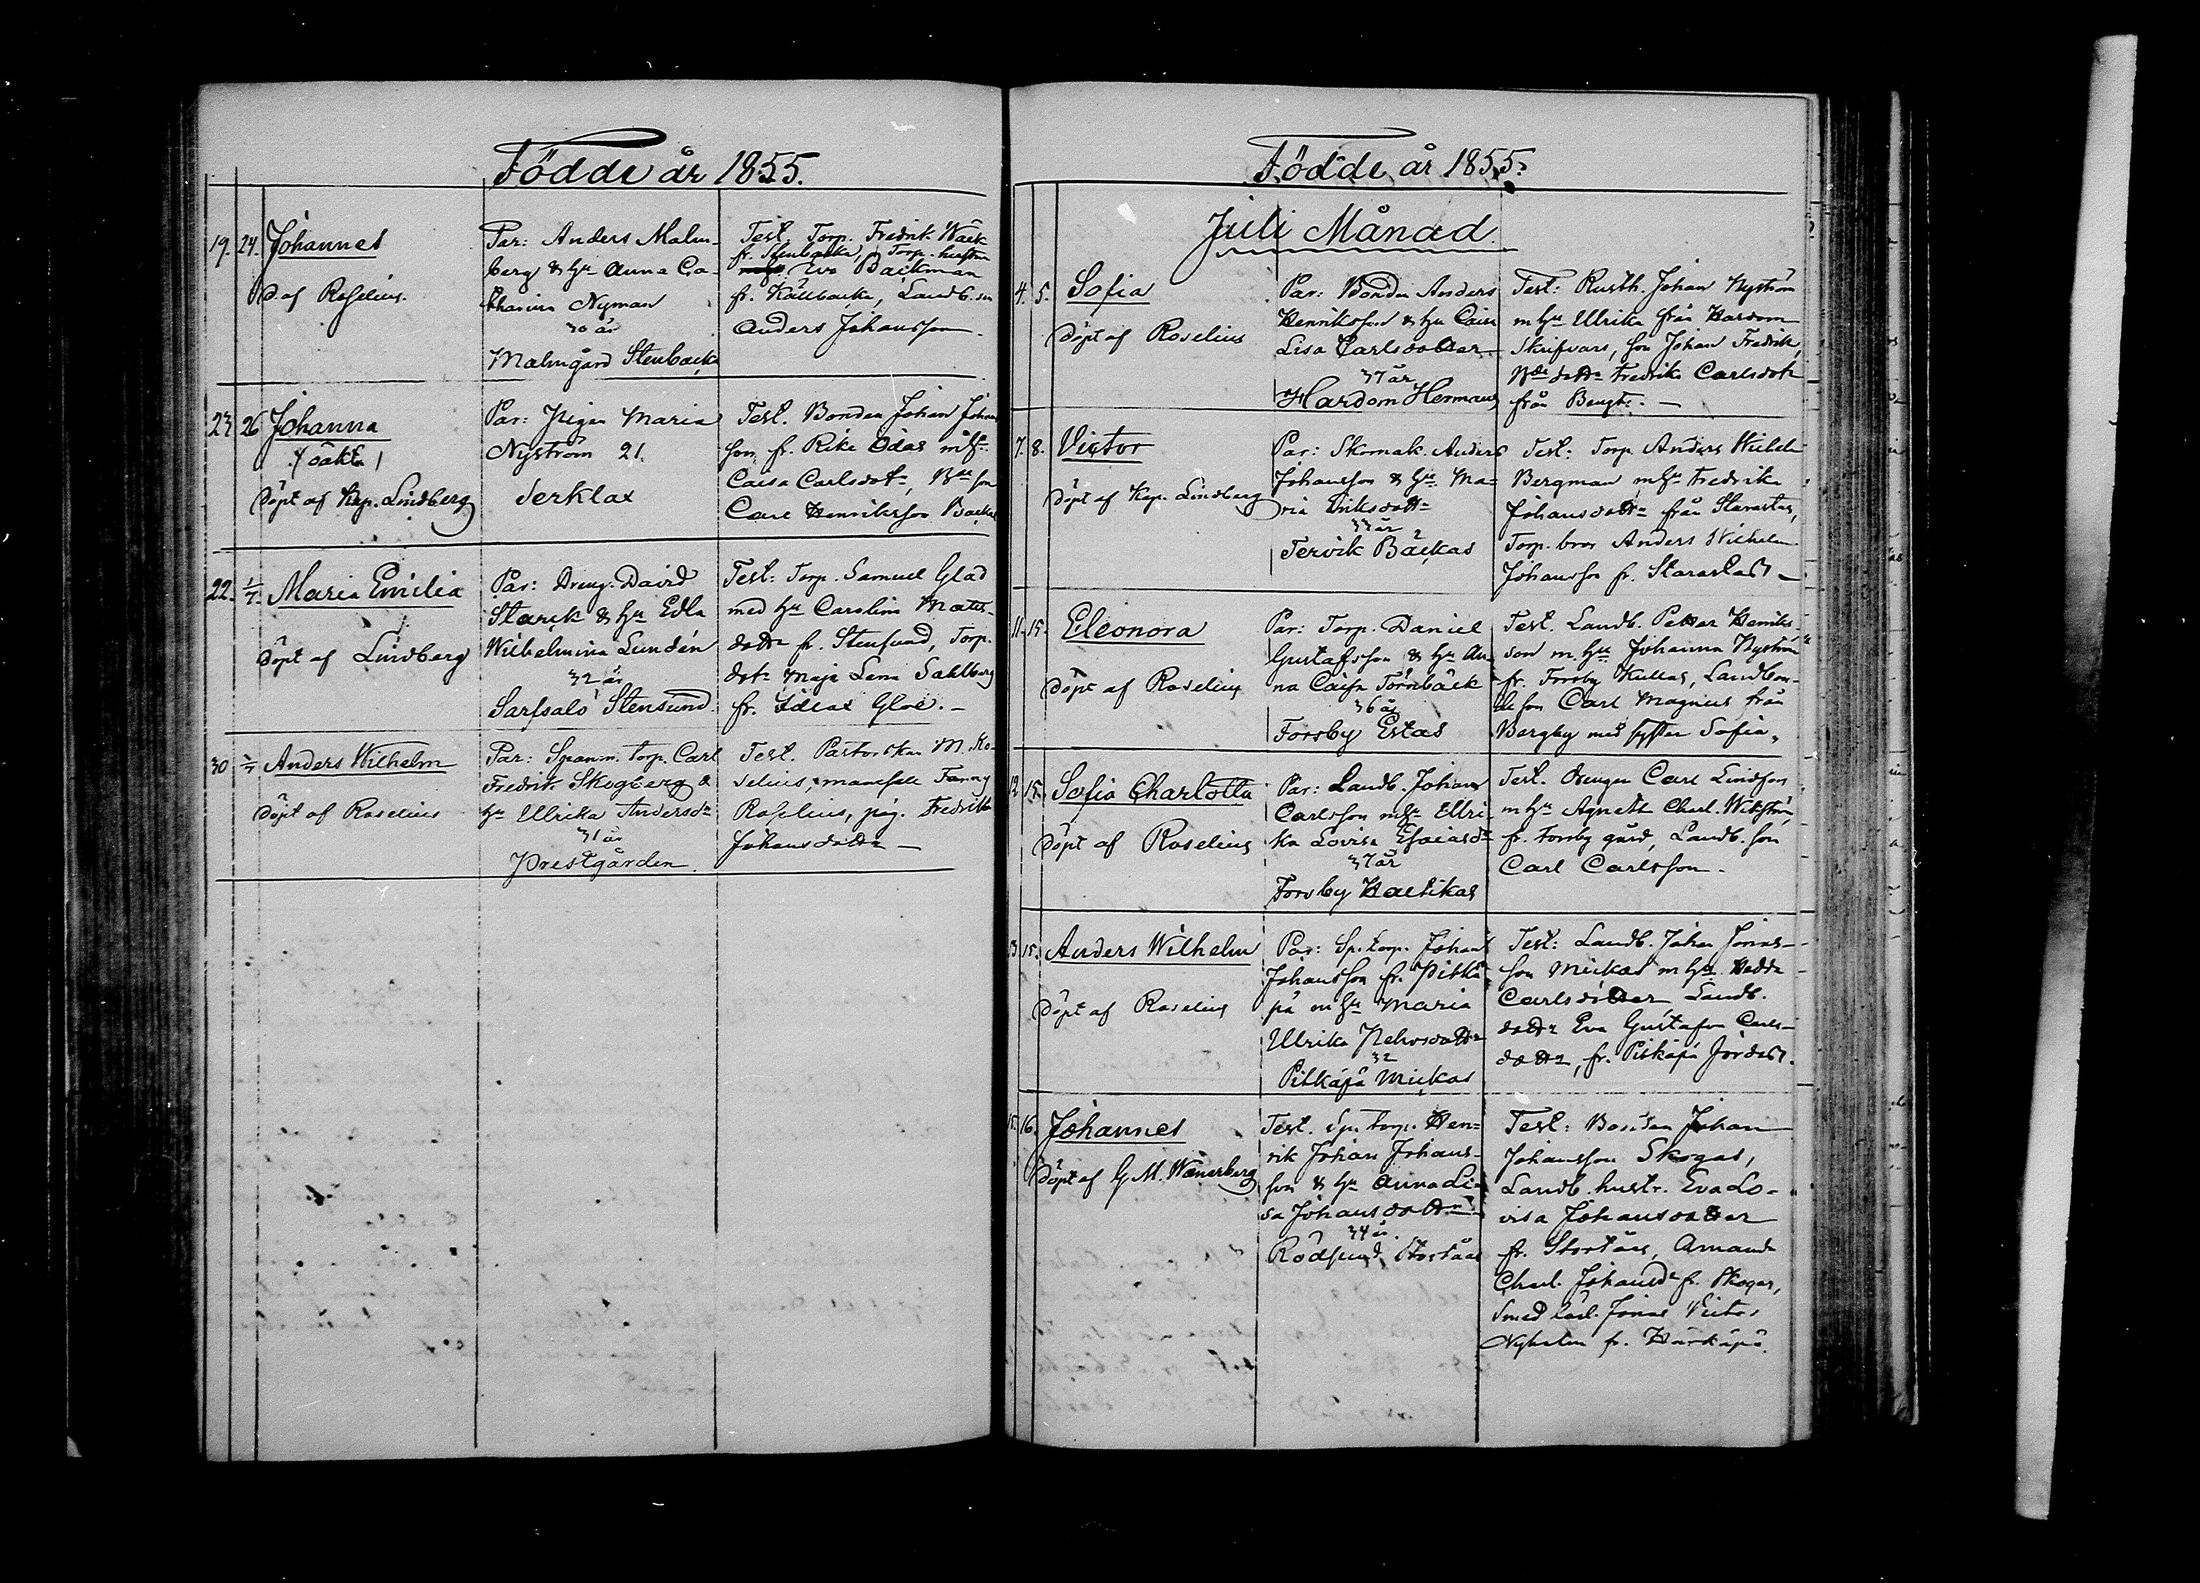 Födde år 1855.
19. 24. Johannes
D. af Roselius.
Par: Anders Malm-
berg & hu Anna Ca-
tharina Nyman
30 år
Malmgård Stenbacka
Test. Torp. Fredrik Wäck
fr. Stenbacka, Torp. hustru
Eva Backman
fr. Källbacka, Landb. son
Anders Johansson.
23 26 Johanna
(oäkta)
Döpt af Kap. Lindberg
Par: Pigan Maria
Nyström 21.
Derklax
Test. Bonden Johan Johans
son fr. Rike Odas m hu
Caisa Carlsdotr, Bde son
Carl Henriksson Backas
22. 1/7. Maria Emilia
Döpt af Lindberg
Par: Dreng. David
Starck & hu Edla
Wilhelmina Lundén
32 år
Sarfsalö Stensund.
Test: Torp. Samuel Glad
med hu Carolina Mats-
dottr fr. Stensund, Torp.
dotr Maja Lena Sahlberg
fr. Idlax Gloe. –
30 2/7 Anders Wilhelm
Döpt af Roselius
Par: Spanm. torp. Carl
Fredrik Skogberg &
hu Ullrika Andersdr
31 år
Prestgården.
Test. Pastorskan M. Ro-
selius, mamsell Fanny
Roselius, pig. Fredrika
Johansdottr –
Födde år 1855.
Juli Månad.
4. 5. Sofia
Döpt af Roselius
Par: Bonden Anders
Henriksson & hu Caisa
Lisa Carlsdotter
37 år
Hardom Hermans
Test: Rusth. Johan Nyström
m hu Ullrika från Hardom
Skrifvars, son Johan Fredrik,
Bde dottr Fredrika Carlsdotr
från Bengts. –
7. 8. Victor
Döpt af Kap. Lindberg
Par: Skomak. Anders
Johansson & hu Ma-
ria Eriksdottr
33 år
Tervik Bäckas
Test: Torp. Anders Wilhelm
Bergman m hu Fredrika
Johansdottr från Starastas,
Torp. bror Anders Wilhelm
Johansson fr. Starastas –
11. 15. Eleonora
Döpt af Roselius
Par: Torp. Daniel
Gustafsson & hu An-
na Caisa Törnbäck
36 år
Forsby Estas
Test. Landb. Petter Henriks-
son m hu Johanna Nyström
fr. Forsby Kullas, Landbon-
de son Carl Magnus från
Bergby med syster Sofia.
12 15. Sofia Charlotta
Döpt af Roselius
Par: Landb. Johan
Carlsson m hu Ullri-
ka Lovisa Esaiasdr
37 år
Forsby Haltikas
Test. Drengen Carl Lindfors
m hu Agneth Charl. Wikström
fr. Forsby gård, Landb. son
Carl Carlsson.
13 15. Anders Wilhelm
Döpt af Roselius
Par: Sp. torp. Johan
Johansson fr. Pitkä-
pä m hu Maria
Ulrika Nehrsdottr
32
Pitkäpä Mickas
Test: Landb. Johan Jonas-
son Mickas m hu Hedda
Carlsdotter Landb.
dottr Eva Gustafva Carls-
dottr, fr. Pitkäpä Jordas.
15. 16. Johannes
Döpt af G. M. Wænerberg
Test. Sp. torp. Hen-
rik Johan Johans-
son & hu Anna Li-
sa Johansdottr
34 år.
Rödsund Stortåas
Test: Bonden Johan
Johansson Skogas,
Landb. hustr. Eva Lo-
visa Johansdotter
fr. Stortåas, Amanda
Charl. Johansdr fr. Skogas,
Smed lärl. Jonas Victor
Nyholm fr. Härkäpä.